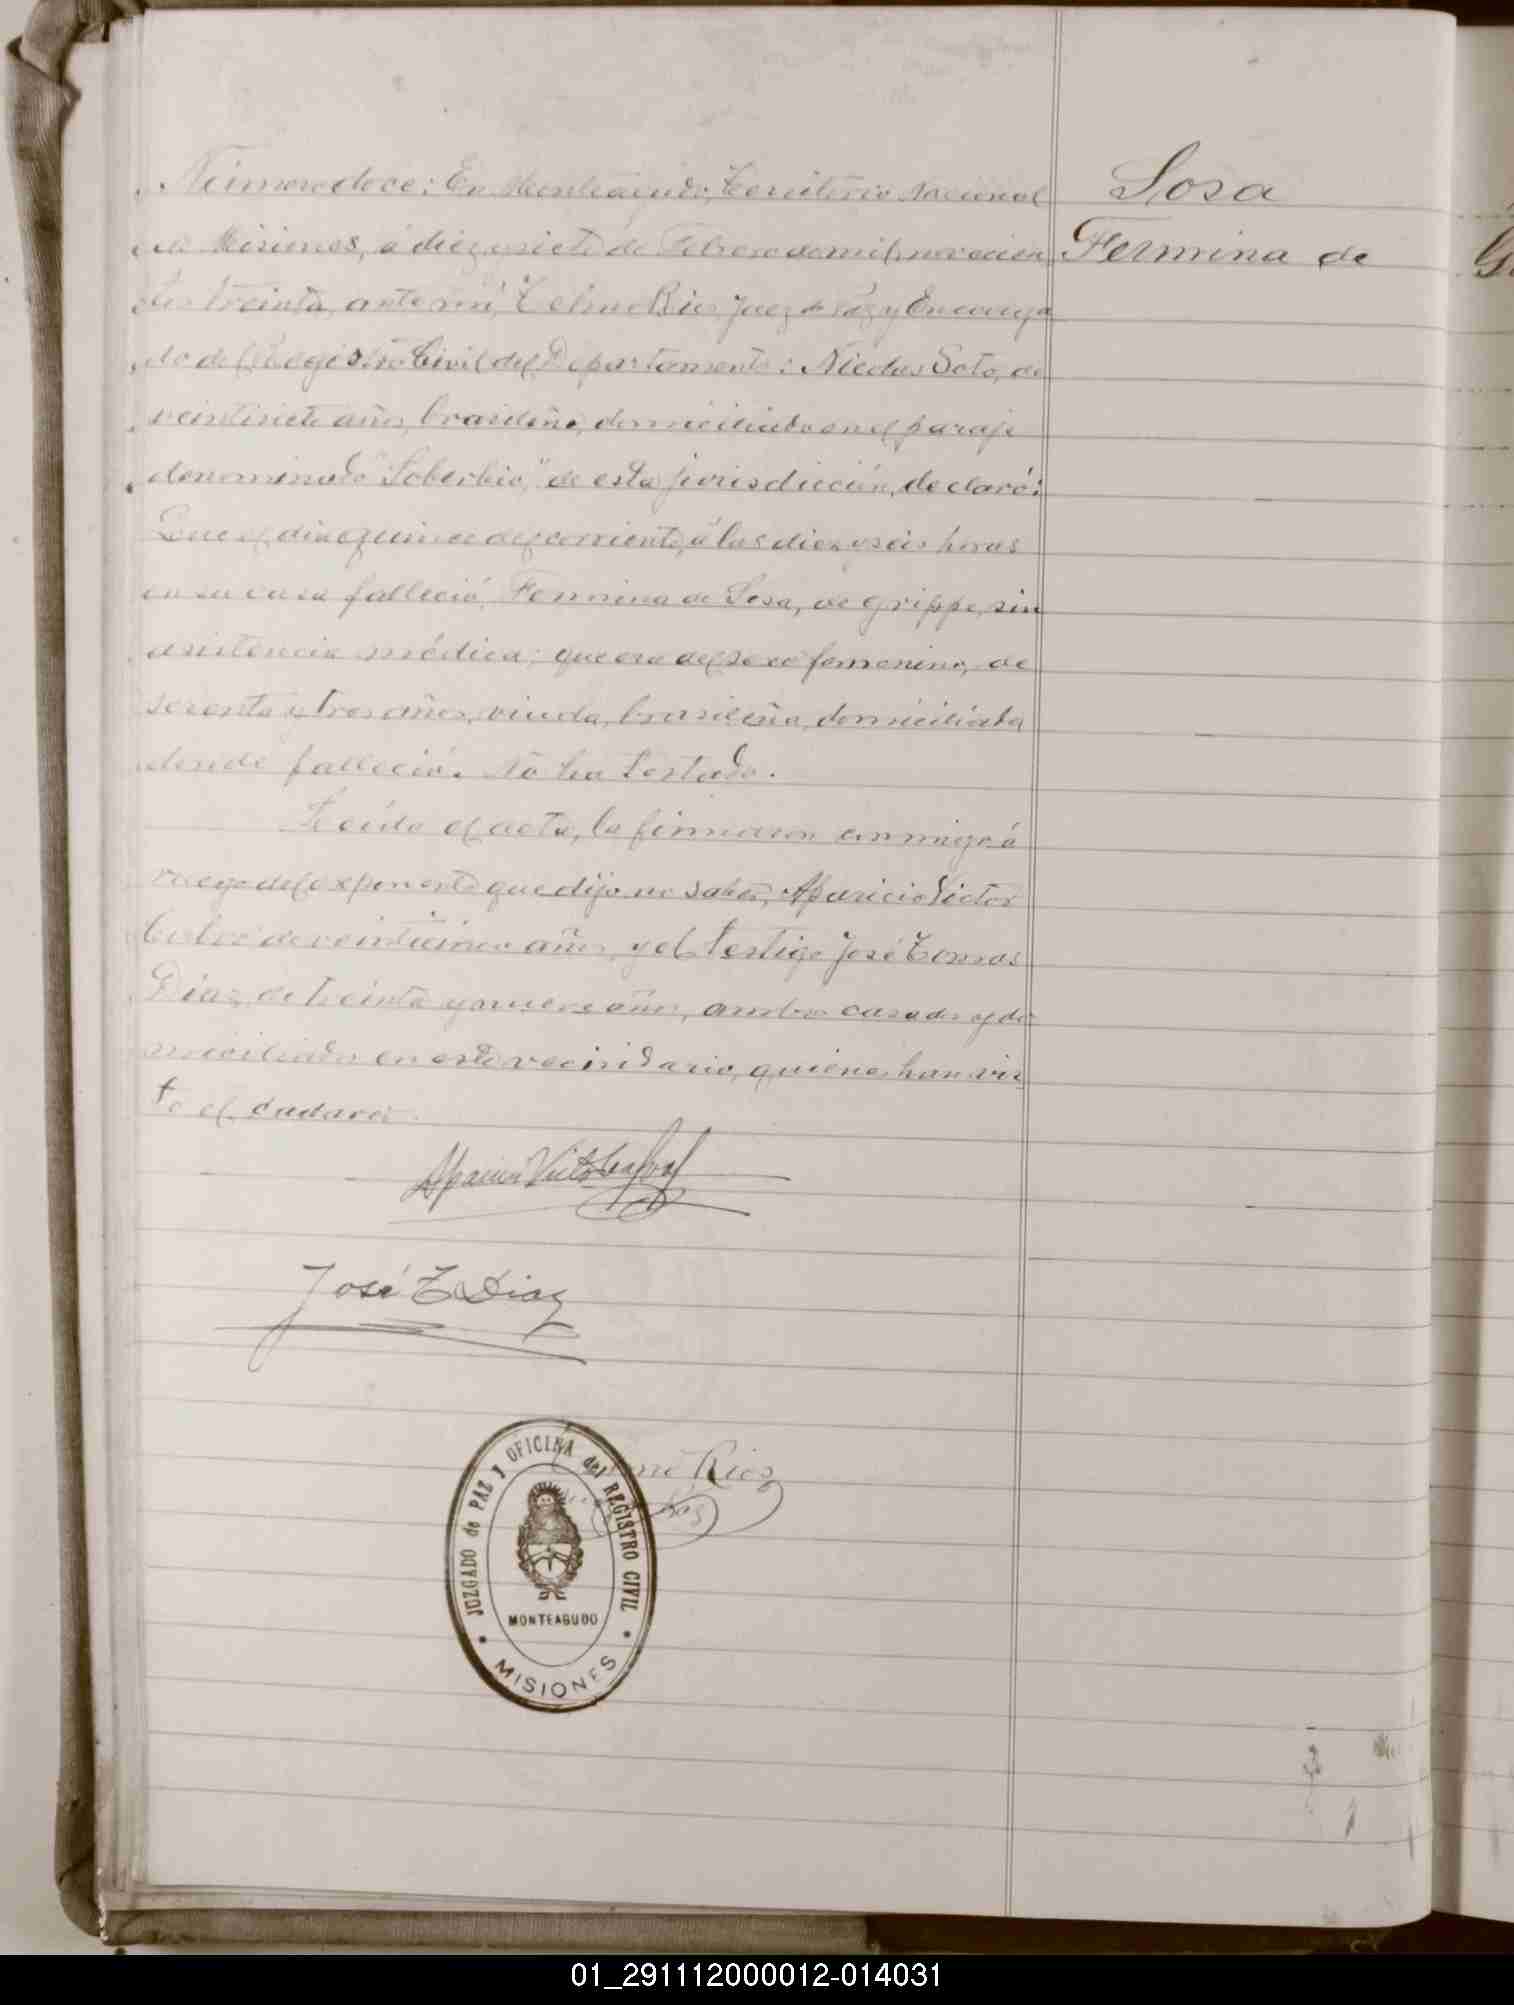 Número doce: En Monteagudo, Territorio Nacional
de Misiones, á diez y siete de Febrero de mil novecien
tos treinta, ante mí, Telmo Rios, Juez de Paz y Encarga
do del Registro Civil del Departamento: Nicolas Soto, de
veintisiete años, brasileño, domiciliado en el paraje
denominado "Soberbio," de esta jurisdicción, declaró:
Que el dia quince del corriente, á las diez y seis horas
en su casa falleció, Fermina de Sosa, de grippe, sin
asistencia médica; que era del sexo femenino, de
y tres años, viuda, brasileña, domiciliada
donde falleció. No ha testado.
Leída el acta, la firmaron conmigo á
ruego del exponente que dijo no saber, Aparicio Victor
de veinticinco años, y el testigo José Tomas
Diaz, de treinta y nueve años, ambos casados y do
miciliados en este vecindario, quienes han vis
to el cadaver.
Sosa
Fermina de
Aparicio Victor
José T Diaz
Rios
JUZGADO de PAZ y OFICINA del REGISTRO CIVIL
MONTEAGUDO
MISIONES
01_291112000012-014031